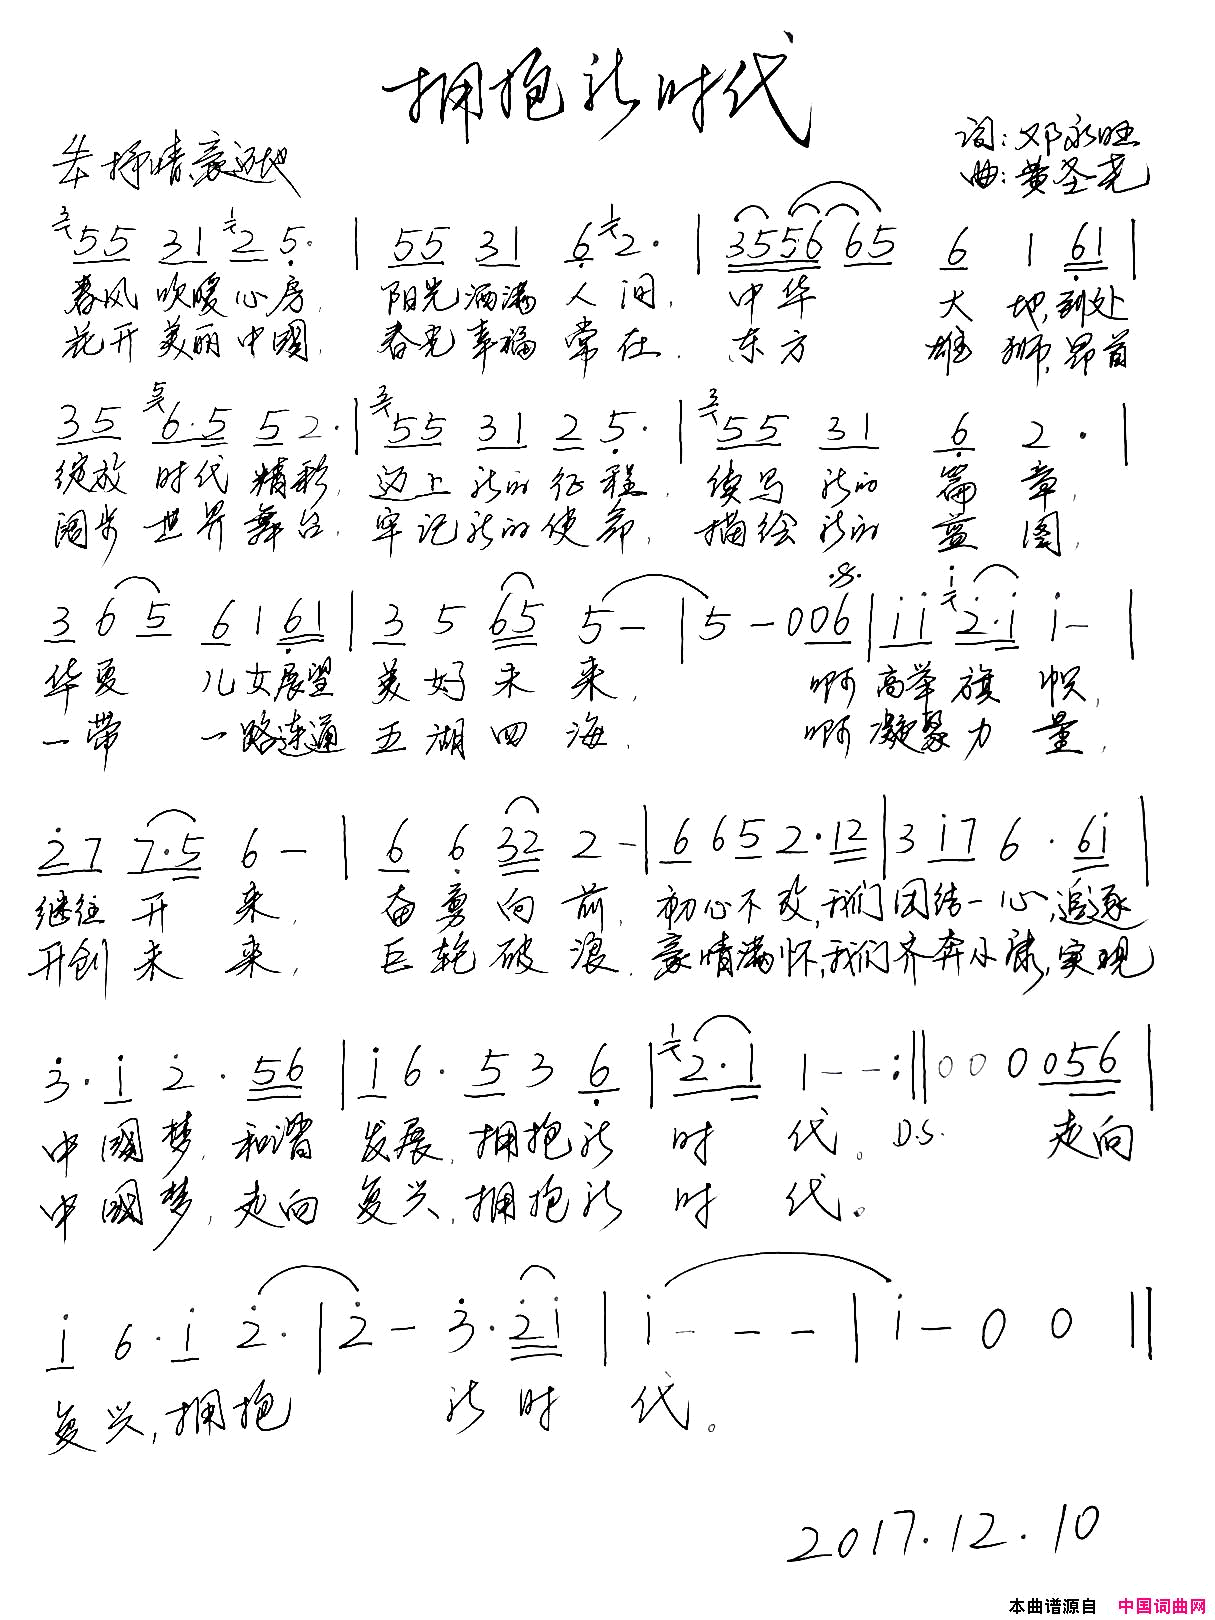 拥抱新时代
词:邓永旺
4/4 抒情、豪迈地
曲:黄圣尧
3 55 31 1 2 5· | 55 31 6 1 2· | 3556 65 6 1 61 |
春风 吹暖 心房, 阳光洒满 人间, 中华 大地,到处
花开 美丽 中國, 春光幸福 常在, 东方 雄狮,昂首
35 5 6·5 5 2· | 3 55 31 2 5· | 3 55 31 6 2· |
绽放 时代 精彩, 迈上 新的 征程, 续写 新的 篇章,
阔步 世界 舞台, 牢记新的使命, 描绘 新的 蓝图,
3 6 5 6 1 61 | 3 5 65 5 - | 5 - 0 06 | i i i 2·i i - |
华夏 儿女展望 美好未来, 啊 高举旗帜,
一带 一路连通 五湖四海, 啊 凝聚力量,
27 7·5 6 - | 6 6 32 2 - | 6 65 2·12 | 3 i7 6·6i |
继往开来, 奋勇向前, 初心不改,我们团结一心,追逐
开创未来, 巨轮破浪, 豪情满怀,我们齐奔小康,实现
3·i 2·56 | i 6·5 3 6 | 1 2·1 1 - - :‖ 0 0 0 056 |
中國梦, 和谐 发展, 拥抱新 时 代。 D.S. 走向
中國梦, 走向 复兴, 拥抱新 时 代。
i 6·i 2· | 2 - 3·2i | i - - - | i - 0 0 ‖
复兴,拥抱 新时 代。
2017.12.10
本曲谱源自 中国词曲网